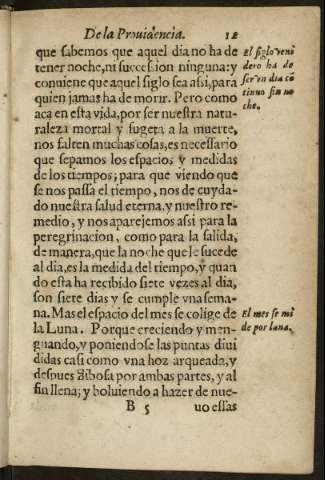 De la Prouidencia. 12
que sabemos que aquel dia no ha de
tener noche, ni succession ninguna: y
conuiene que aquel siglo sea assi, para
quien jamas ha de morir. Pero como
aca en esta vida, por ser nuestra natu-
raleza mortal y sugeta a la muerte,
nos falten muchas cosas, es necessario
que sepamos los espacios y medidas
de los tiempos; para que viendo que
se nos passa el tiempo, nos de cuyda-
do nuestra salud eterna, y nuestro re-
medio, y nos aparejemos assi para la
peregrinacion, como para la salida,
de manera, que la noche que le sucede
al dia, es la medida del tiempo, y quan
do esta ha recibido siete vezes al dia,
son siete dias y se cumple vna sema-
na. Mas el espacio del mes se colige de
la Luna. Porque creciendo y men-
guando, y poniendose las puntas diui
didas casi como vna hoz arqueada, y
despues gibosa por ambas partes, y al
fin llena; y boluiendo a hazer de nue-
B 5 uo essas
El siglo veni
dero ha de
ser en dia cõ
tinuo sin no
che.
El mes se mi
de por luna.